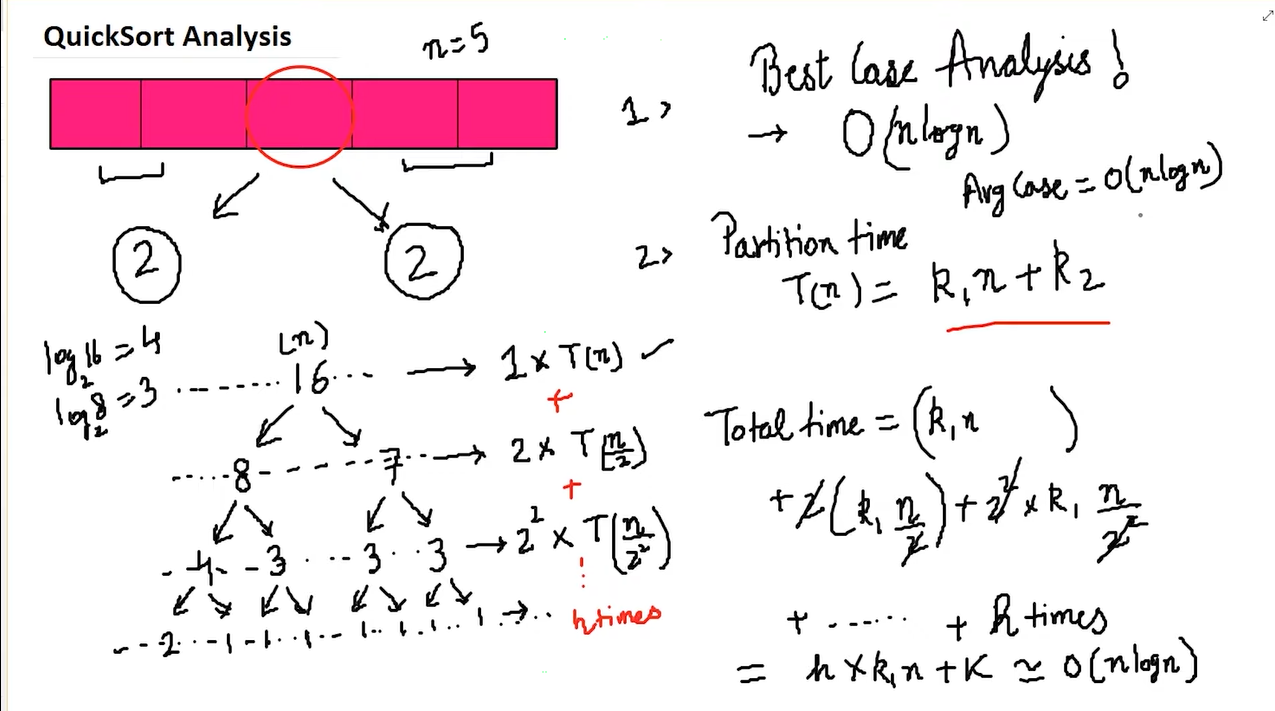 QuickSort Analysis
n=5
2
2
log₂16 = 4
log₂8 = 3
(n)
16 → 1 × T(n) ✓
+
8 7 → 2 × T(n/2)
+
4 3 3 3 → 2² × T(n/2²)
2 1 1 1 1 1 1 1 → .. h times
1> Best Case Analysis!
→ O(nlogn)
Avg Case = O(nlogn)
2> Partition time
T(n) = k₁n + k₂
Total time = (k₁n )
+ 2(k₁ n/2) + 2² × k₁ n/2²
+ ...... + h times
= h × k₁n + K ≃ O(nlogn)